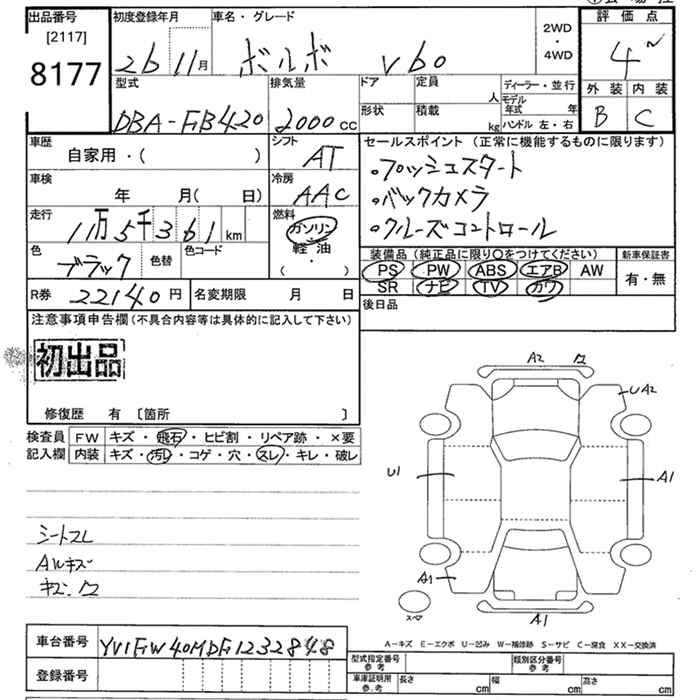 出品番号
[2117]
8177
初度登録年月
26 11月
車名・グレード
ボルボ V60
2WD
・
4WD
評価点
4
外装 内装
B C
型式
DBA-FB420
排気量
2000cc
ドア
形状
定員
人
積載
kg
ディーラー・並行
モデル
年式 年
ハンドル 左・右
車歴
自家用・( )
シフト
AT
車検
年 月(日)
冷房
AAC
走行
11万5千361km
燃料
ガソリン
・軽油・
( )
色
ブラック
色替
色コード
R券 22140円
名変期限 月 日
セールスポイント(正常に機能するものに限ります)
・プッシュスタート
・バックカメラ
・クルーズコントロール
装備品(純正品に限り○をつけてください)
PS PW ABS エアB AW
SR ナビ TV カワ
新車保証書
有・無
後日品
注意事項申告欄(不具合内容等は具体的に記入して下さい)
初出品
修復歴 有 [箇所 ]
検査員
記入欄
FW キズ・飛石・ヒビ割・リペア跡・×要
内装 キズ・汚レ・コゲ・穴・スレ・キレ・破レ
シートスレ
AWキズ
キズ、ワ
A2 ワ
UA2
U1
A1
A1
スペア
A1
A―キズ E―エクボ U―凹み W―補修跡 S―サビ C―腐食 XX―交換済
車台番号 YV1FW40MDF1232848
登録番号
型式指定番号
参考
類別区分番号
参考
車庫証明用
参考
長さ cm
幅 cm
高さ cm